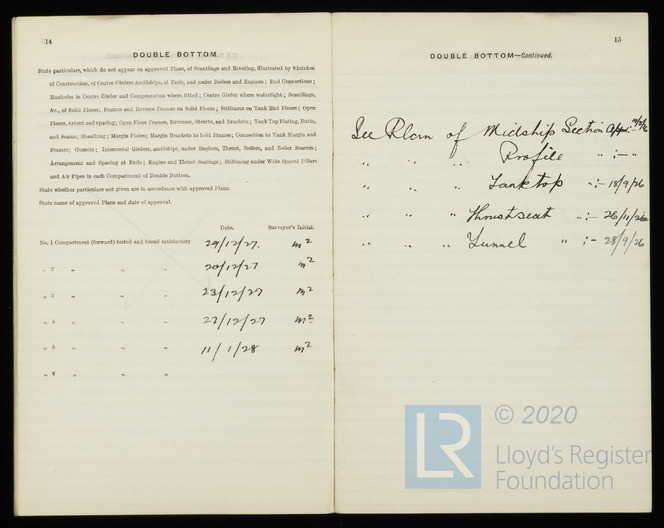 14
DOUBLE BOTTOM.
State particulars, which do not appear on approved Plans, of Scantlings and Riveting, illustrated by Sketches
of Construction, of Centre Girders Amidships, at Ends, and under Boilers and Engines; End Connections;
Manholes in Centre Girder and Compensation where fitted; Centre Girder where watertight; Scantlings,
&c., of Solid Floors; Frames and Reverse Frames on Solid Floors; Stiffeners on Tank End Floors; Open
Floors, extent and spacing; Open Floor Frames, Reverses, Struts, and Brackets; Tank Top Plating, Butts,
and Seams; Sheathing; Margin Plates; Margin Brackets to hold Frames; Connection to Tank Margin and
Frames; Gussets; Intercostal Girders, amidships, under Engines, Thrust, Boilers, and Boiler Bearers;
Arrangement and Spacing at Ends; Engine and Thrust Seatings; Stiffening under Wide Spaced Pillars
and Air Pipes in each Compartment of Double Bottom.
State whether particulars not given are in accordance with approved Plans.
State name of approved Plans and date of approval.
Date. Surveyor's Initial.
No. 1 Compartment (forward) tested and found satisfactory 29/12/27. m2
„ 2 „ „ „ 20/12/27 m2
„ 3 „ „ „ 23/12/27 m2
„ 4 „ „ „ 27/12/27 m2
„ 5 „ „ „ 11/1/28 m2
„ 6 „ „ „
15
DOUBLE BOTTOM—Continued.
See Plan of Midship Section App:-
„ „ „ Profile „ :- „
„ „ „ Tank top „ :- 18/9/26
„ „ „ Thrust seat „ :- 26/11/26
„ „ „ Tunnel „ :- 28/9/26
LR
© 2020
Lloyd's Register
Foundation